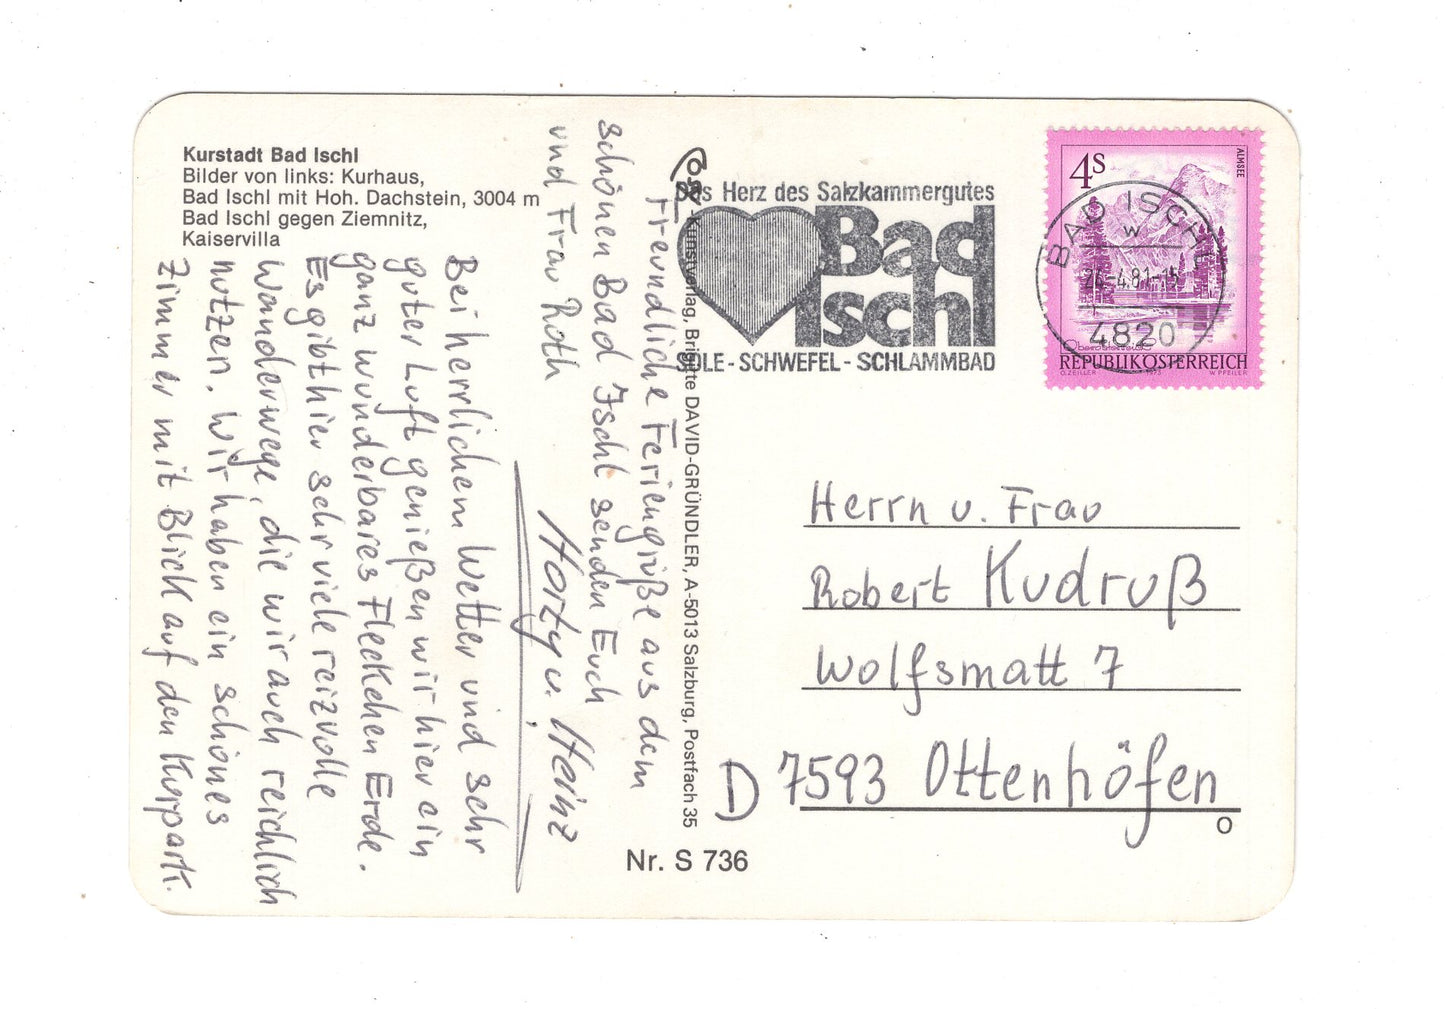 Kurstadt Bad Ischl
Bilder von links: Kurhaus,
Bad Ischl mit Hoh. Dachstein, 3004 m
Bad Ischl gegen Ziemnitz,
Kaiservilla
Freundliche Feriengrüße aus dem
schönen Bad Ischl senden Euch
und Frau Roth
Horzy u. Heinz
Bei herrlichem Wetter und sehr
guter Luft genießen wir hier ein
ganz wunderbares Fleckchen Erde.
Es gibt hier sehr viele reizvolle
Wanderwege, die wir auch reichlich
nutzen. Wir haben ein schönes
Zimmer mit Blick auf den Kurpark.
-Kunstverlag, Brigitte DAVID-GRÜNDLER, A-5013 Salzburg, Postfach 35
Nr. S 736
Das Herz des Salzkammergutes
Bad
Ischl
SOLE - SCHWEFEL - SCHLAMMBAD
4S
ALMSEE
Oberösterreich
REPUBLIK ÖSTERREICH
O. ZEILER 1973 W. PFEILER
BAD ISCHL
w
-4.81-15
4820
Herrn u. Frau
Robert Kudruß
Wolfsmatt 7
D 7593 Ottenhöfen
O